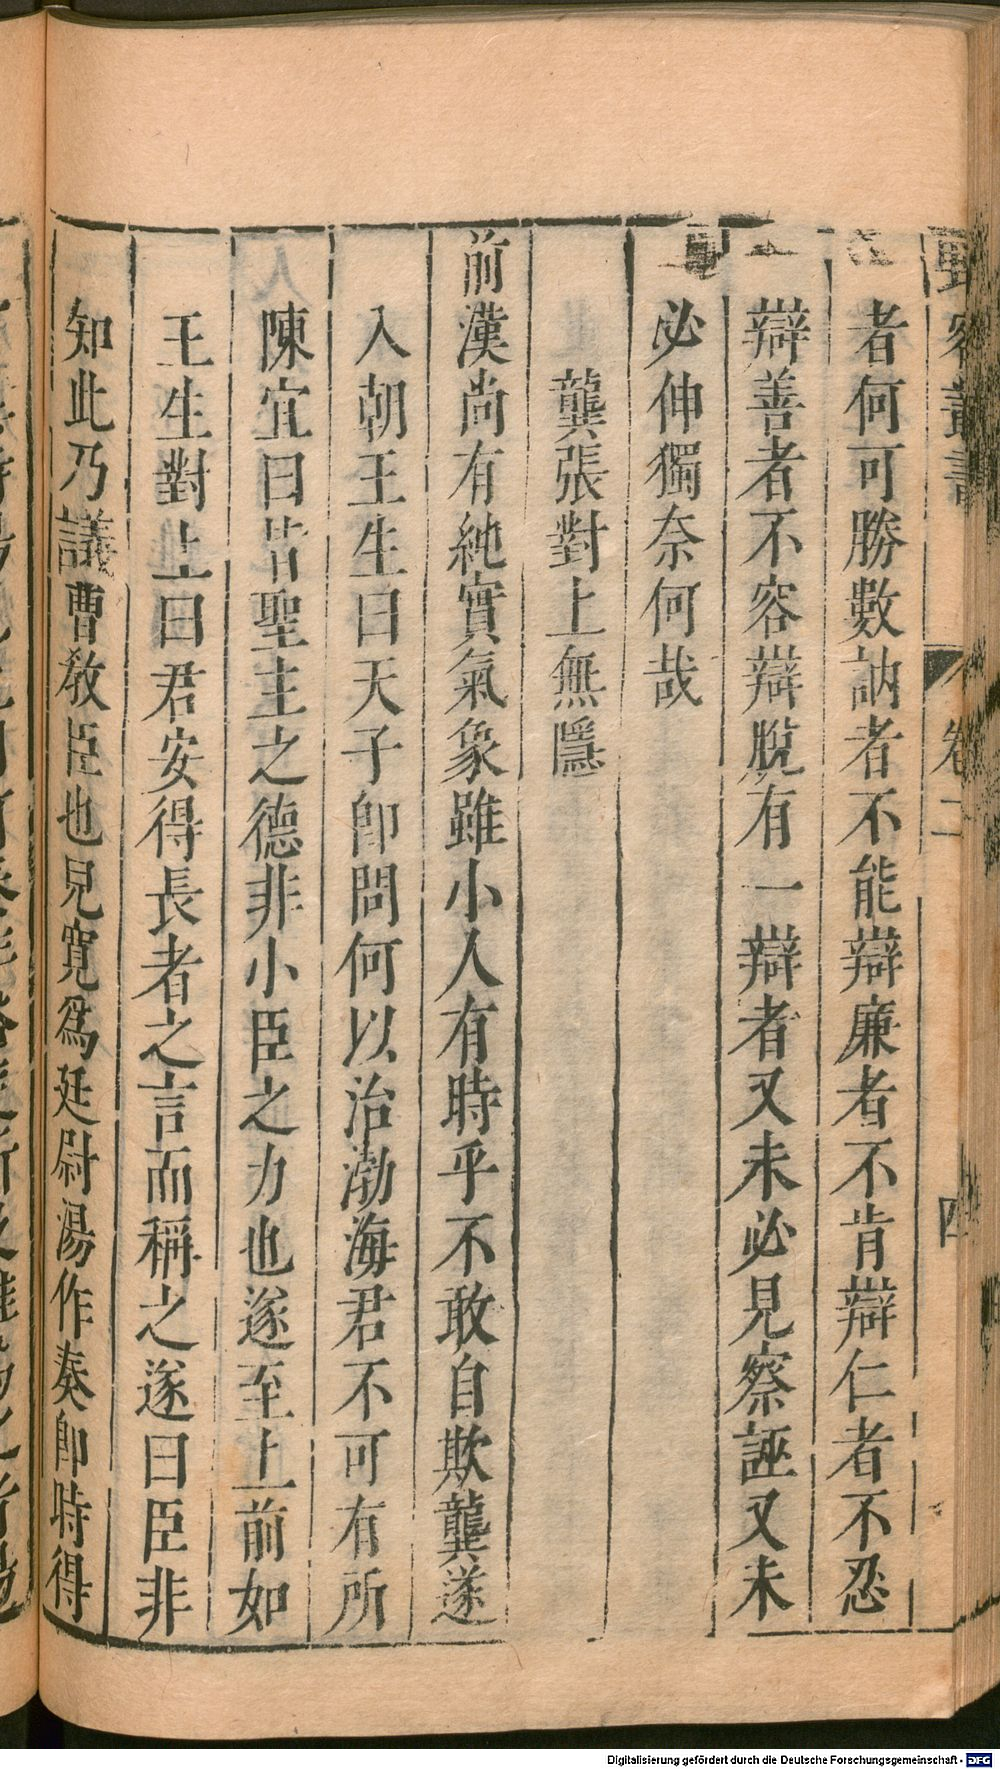 野客叢書 卷二 四
者何可勝數訥者不能辯廉者不肯辯仁者不忍
辯善者不容辯脫有一辯者又未必見察誣又未
必伸獨奈何哉
龔張對上無隱
前漢尚有純實氣象雖小人有時乎不敢自欺龔遂
入朝王生曰天子卽問何以治渤海君不可有所
陳宜曰皆聖主之德非小臣之力也遂至上前如
王生對上曰君安得長者之言而稱之遂曰臣非
知此乃議曹敎臣也兒寬爲廷尉湯作奏卽時得
Digitalisierung gefördert durch die Deutsche Forschungsgemeinschaft - DFG